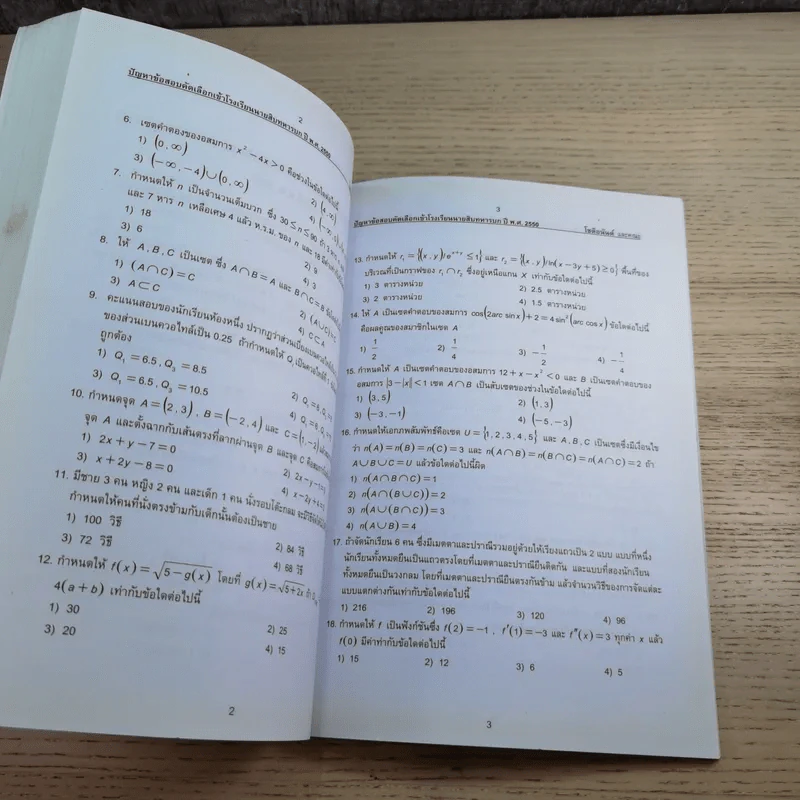 2
ปัญหาข้อสอบคัดเลือกเข้าโรงเรียนนายสิบทหารบก ปี พ.ศ. 2550
6. เซตคำตอบของอสมการ x² − 4x > 0 คือช่วงในข้อใดต่อไปนี้
1) (0, ∞)
2) (4, ∞)
3) (−∞, −4)∪(0, ∞)
4) (−∞, 0)
7. กำหนดให้ n เป็นจำนวนเต็มบวก ซึ่ง 30 ≤ n ≤ 90 ถ้า 5
และ 7 หาร n เหลือเศษ 4 แล้ว ห.ร.ม. ของ n และ 18
1) 18
2) 9
3) 6
4) 3
8. ให้ A, B, C เป็นเซต ซึ่ง A∩B = A และ B∩C = B
1) (A∩C) = C
2) (A∪C) =
3) A⊂C
4) C⊂A
9. คะแนนสอบของนักเรียนห้องหนึ่ง ปรากฏว่าส่วนเบี่ยงเบนควอไทล์
ของส่วนเบนควอไทล์เป็น 0.25 ถ้ากำหนดให้ Qᵢ เป็นควอไทล์ที่ i
ถูกต้อง
1) Q₁ = 6.5, Q₃ = 8.5
2) Q₁ = 6, Q₃
3) Q₁ = 6.5, Q₃ = 10.5
4) Q₁ = 6, Q₃
10. กำหนดจุด A = (2, 3), B = (−2, 4) และ C = (1, −2)
จุด A และตั้งฉากกับเส้นตรงที่ลากผ่านจุด B และจุด C คือสมการ
1) 2x + y − 7 = 0
2) 2x − y − 1 = 0
3) x + 2y − 8 = 0
4) x − 2y + 4 =
11. มีชาย 3 คน หญิง 2 คน และเด็ก 1 คน นั่งรอบโต๊ะกลม จะมีวิธี
กำหนดให้คนที่นั่งตรงข้ามกับเด็กนั้นต้องเป็นชาย
1) 100 วิธี
2) 84 วิธี
3) 72 วิธี
4) 68 วิธี
12. กำหนดให้ f(x) = √5 − g(x) โดยที่ g(x) = √5 + 2x ถ้า
4(a + b) เท่ากับข้อใดต่อไปนี้
1) 30
2) 25
3) 20
4) 15
2
3
ปัญหาข้อสอบคัดเลือกเข้าโรงเรียนนายสิบทหารบก ปี พ.ศ. 2550 โชติอพันต์ และคณะ
13. กำหนดให้ r₁ = {(x, y)/eˣ⁺ʸ ≤ 1} และ r₂ = {(x, y)/ln(x − 3y + 5) ≥ 0} พื้นที่ของ
บริเวณที่เป็นกราฟของ r₁ ∩ r₂ ซึ่งอยู่เหนือแกน X เท่ากับข้อใดต่อไปนี้
1) 3 ตารางหน่วย 2) 2.5 ตารางหน่วย
3) 2 ตารางหน่วย 4) 1.5 ตารางหน่วย
14. ให้ A เป็นเซตคำตอบของสมการ cos(2arc sin x) + 2 = 4sin²(arc cos x) ข้อใดต่อไปนี้
คือผลคูณของสมาชิกในเซต A
1) 1/2 2) 1/4 3) −1/2 4) −1/4
15. กำหนดให้ A เป็นเซตคำตอบของอสมการ 12 + x − x² < 0 และ B เป็นเซตคำตอบของ
อสมการ |3 − |x|| < 1 เซต A∩B เป็นสับเซตของช่วงในข้อใดต่อไปนี้
1) (3, 5) 2) (1, 3)
3) (−3, −1) 4) (−5, −3)
16. กำหนดให้เอกภพสัมพัทธ์คือเซต U = {1, 2, 3, 4, 5} และ A, B, C เป็นเซตซึ่งมีเงื่อนไข
ว่า n(A) = n(B) = n(C) = 3 และ n(A∩B) = n(B∩C) = n(A∩C) = 2 ถ้า
A∪B∪C = U แล้วข้อใดต่อไปนี้ผิด
1) n(A∩B∩C) = 1
2) n(A∩(B∪C)) = 2
3) n(A∪(B∩C)) = 3
4) n(A∪B) = 4
17. ถ้าจัดนักเรียน 6 คน ซึ่งมีเมตตาและปราณีรวมอยู่ด้วยให้เรียงแถวเป็น 2 แบบ แบบที่หนึ่ง
นักเรียนทั้งหมดยืนเป็นแถวตรงโดยที่เมตตาและปราณียืนติดกัน และแบบที่สองนักเรียน
ทั้งหมดยืนเป็นวงกลม โดยที่เมตตาและปราณียืนตรงกันข้าม แล้วจำนวนวิธีของการจัดแต่ละ
แบบแตกต่างกันเท่ากับข้อใดต่อไปนี้
1) 216 2) 196 3) 120 4) 96
18. กำหนดให้ f เป็นฟังก์ชันซึ่ง f(2) = −1, f′(1) = −3 และ f″(x) = 3 ทุกค่า x แล้ว
f(0) มีค่าเท่ากับข้อใดต่อไปนี้
1) 15 2) 12 3) 6 4) 5
3